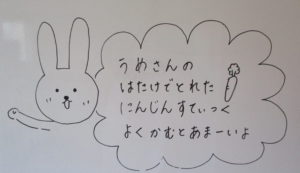 うめさんの
はたけでとれた
にんじんすてぃっく
よくかむとあまーいよ